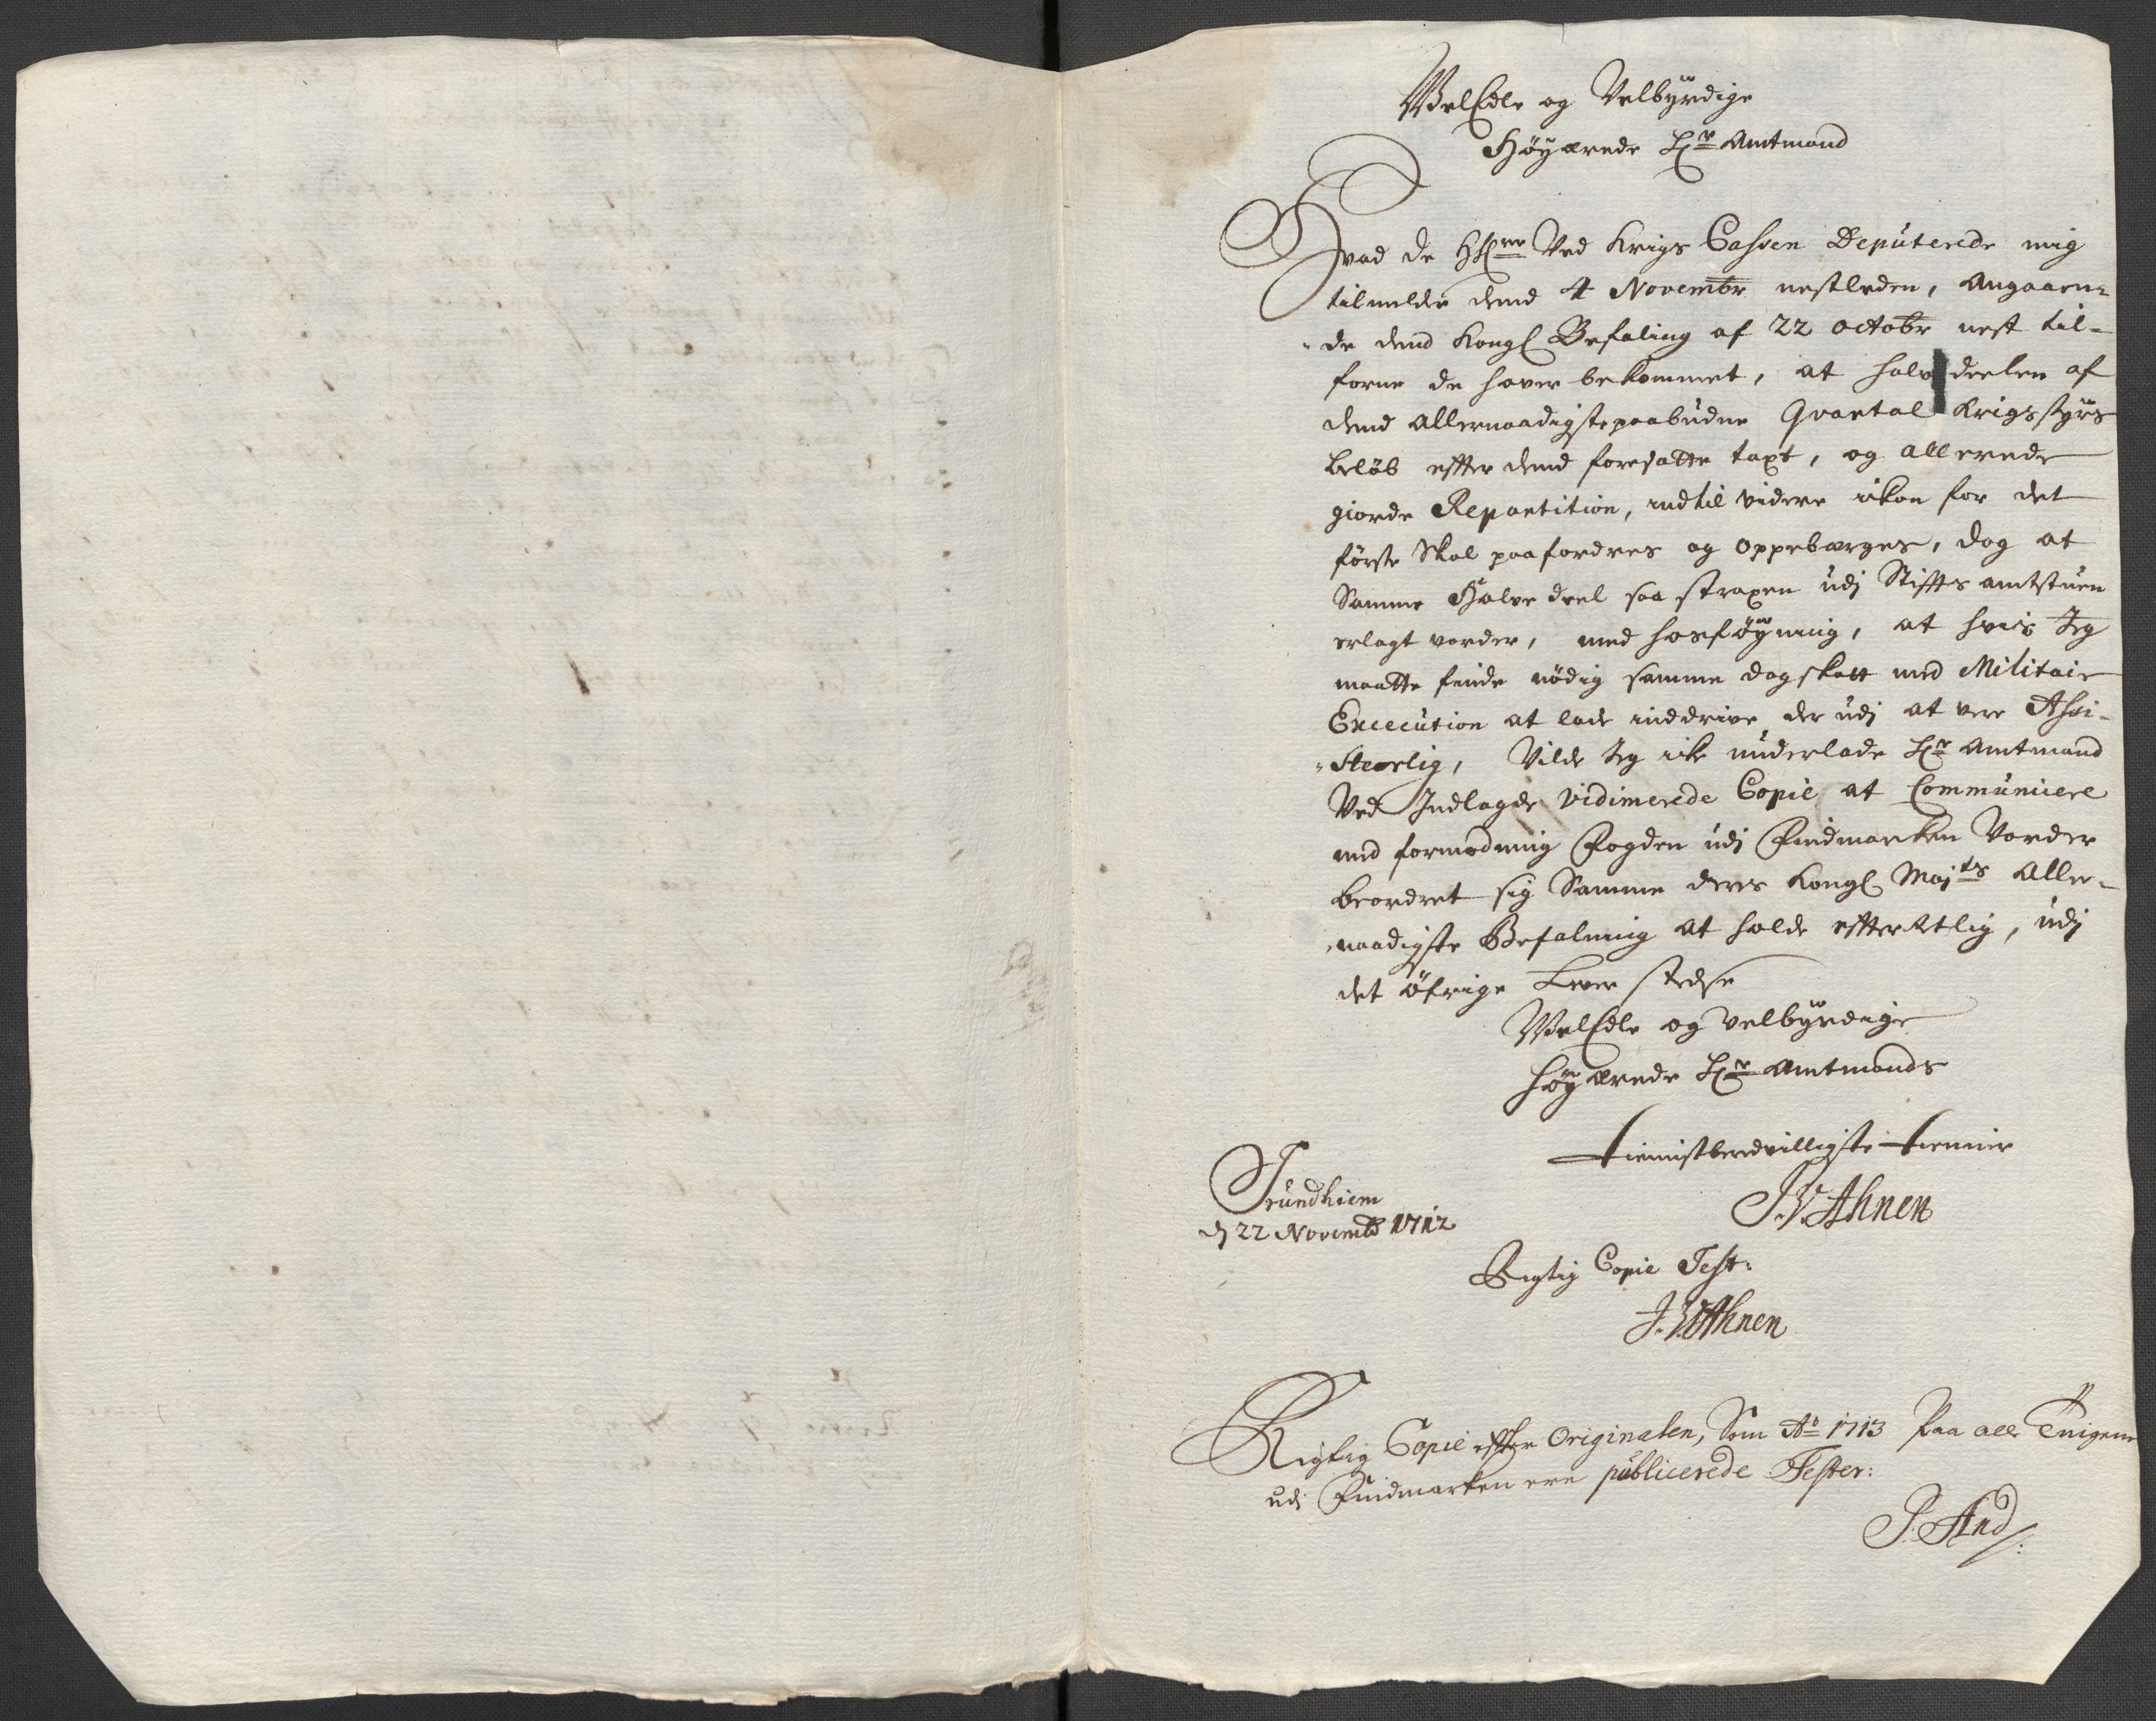 WelEdle og Velbÿrdige
Høÿærede Hr Amtmand
Hvad de HHrer Ved Krigs Cassen Deputerede mig
tilmelder dend 4 Novembr nestleden, Angaaen-
de dend Kongl Befaling af 22 octobr nest til-
forne de haver bekommet, at halv deelen af
dend Allernaadigste paabudne Qvartal Krigsstÿrs
beløb effter dend foresatte taxt, og allerede
giorde Repartition, indtil videre ickon for det
første Skal paafordres og oppebærges, dog at
Samme Halve deel saa straxen udj Stiffts amtstuen
erlagt vorder, med hosføÿning, at hvis Jeg
maatte finde nødig samme dog skatt med Militair
Execution at lade inddrive der udj at vere Assi-
steerlig, Vilde Jeg icke underlade Hr Amtmand
Ved Indlagde vidimerede Copie at Communicere
med formodning Fogden udj Findmarken Vorder
beordret sig Samme deres Kongl Majts Aller-
naadigste Befalning at holde effterRetlig, udj
det øfrige Lever stedse
WelEdle og Velbÿrdige
høÿ ærede Hr Amtmands
tienistberedvilligste tienner
Trundhiem
d 22 Novembr 1712
J.V.Ahnen
Rigtig Copie Test:
J.V.Ahnen
Rigtig Copie effter Originalen, Som Ao 1713 paa alle Tingene
udj Findmarken ere publicerede Tester: